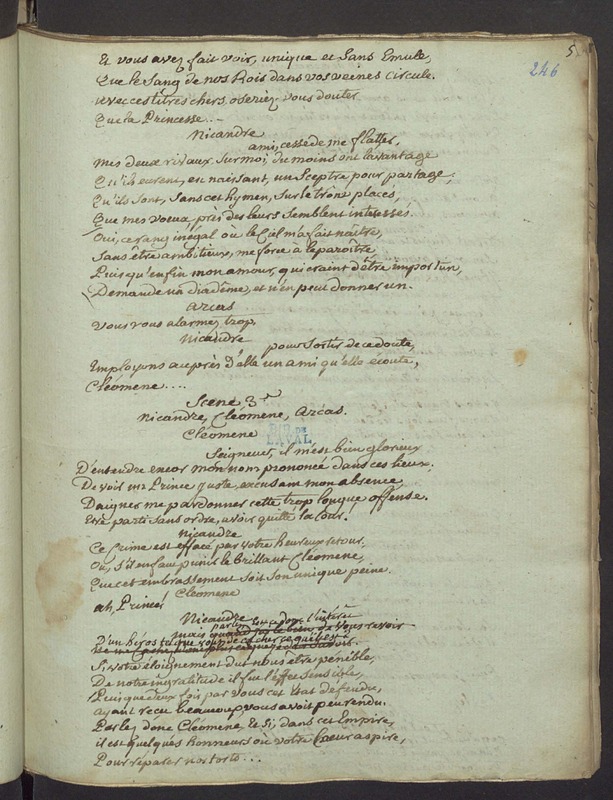 5
246
Et vous avez fait voir, unique et Sans Emule,
Que le Sang de nos Rois dans vos veines circule.
avec ces titres chers, oseriez-vous douter
Que la Princesse...
Nicandre
ami, cesse de me flatter,
Mes deux rivaux Sur moi, du moins ont l'avantage
Qu'ils eurent, en naissant, un Sceptre pour partage,
Qu'ils Sont, Sans cet hymen, Sur le trône placés,
Que mes voeux, près des leurs Semblent intéressés.
Oui, ce rang inégal où le Ciel m'a fait naître,
Sans être ambitieux, me force à le paroître
Puisqu'enfin mon amour, qui craint d'être importun,
Demande un diadême, et n'en peut donner un.
Arcas
Vous vous alarmez trop,
Nicandre
pour Sortir de ce doute,
Employons auprès d'elle un ami qu'elle écoute,
Cléomene....
Scene 3e
Nicandre, Cléomene, Arcas.
Cléomene
BIB DE
LAVAL
Seigneur, il m'est bien glorieux
D'entendre encor mon nom prononcé dans ces lieux.
De voir un Prince juste, excusant mon absence,
Daigner me pardonner cette trop longue offense.
Etre parti Sans ordre, avoir quitté la Cour.
Nicandre
Ce Crime est effacé par votre heureux retour,
Ou, s'il en faut punir le brillant Cléomene,
Que cet embrassement Soit Son unique peine.
Cléomene
ah, Prince!
Nicandre
D'un heros tel que vous
Si votre éloignement dut nous être pénible,
De notre ingratitude il fut l'effet Sensible,
Puisque deux fois par vous cet Etat défendu,
ayant recu beaucoup, vous avoit peu rendu.
Parlez donc Cléomene, et Si, dans cet Empire,
il est quelques honneurs où votre Coeur aspire,
Pour réparer nos torts...